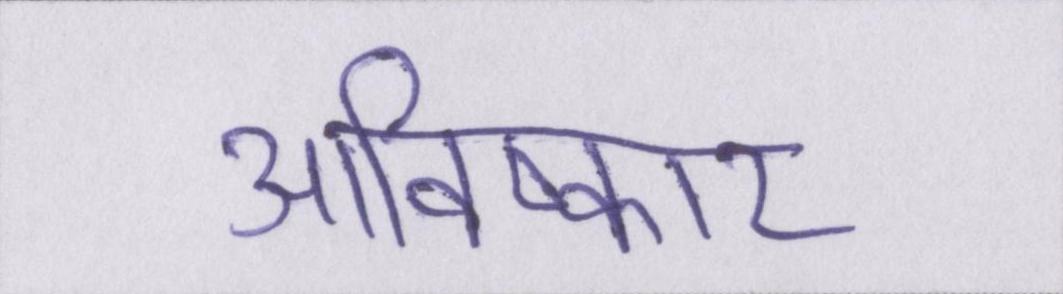 आविष्कार